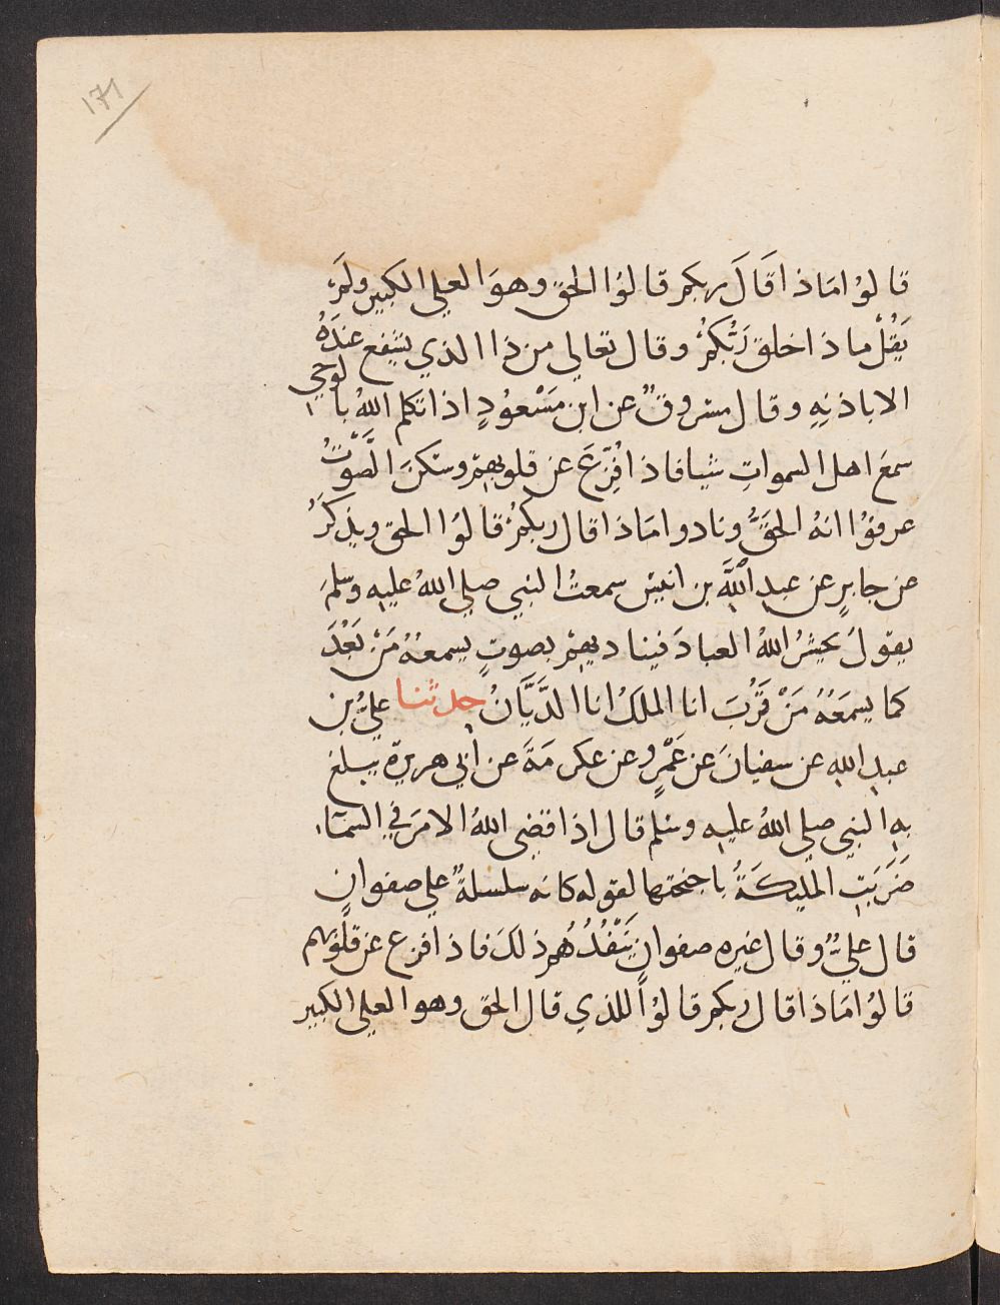 ١٧١
قالوُا مَاذا قَالَ ربكم قالوُا الحق وهوَ العلي الكبير ولَمْ
يَقُلْ ماذا خلق رَبُّكُمْ وقال تعالي من ذا الذي يشفع عندَهُ
الا باذنِهِ وقال مسروقٌ عن ابن مَسْعوُدٍ اذا تكلم اللهُ بالوحي
سمعَ اهل السمواتِ شيا فاذا فُزِّعَ عن قلوبهِمْ وسَكنَ الصَّوْتُ
عرفوُا انهُ الحقُّ ونادوا مَاذا قال ربكمُ قالوُا الحق ويذكرُ
عن جابرٍ عن عبدِ اللَّهِ بن انيس سمعتُ النبي صلي اللهُ عليه وسلمَ
يقولُ يحشرُ اللهُ العبادَ فيناديهِمْ بصوتٍ يسمعُهُ مَنْ بَعُدَ
كما يسمَعُهُ مَنْ قَرُبَ انا الملكُ انا الدَّيَّانُ حدثنا عليُّ بن
عبدِ اللهِ عن سفيانَ عن عَمْرٍو عن عكرمَةَ عن أبي هريرة يبلغ
بهِ النبي صلي اللهُ عليه وسلم قال اذا قضي اللهُ الامرَ في السمآء
ضَرَبَتِ المليكَةُ باجنحتها لقوله كانه سلسلةٌ علي صفوانٍ
قال عليٌّ وقال غيره صفوانٍ يَنْفُذُهُمْ ذلكَ فاذا فزع عن قلوبهم
قالوُا مَاذا قال ربكم قالوُا للذي قال الحق وهو العلي الكبير